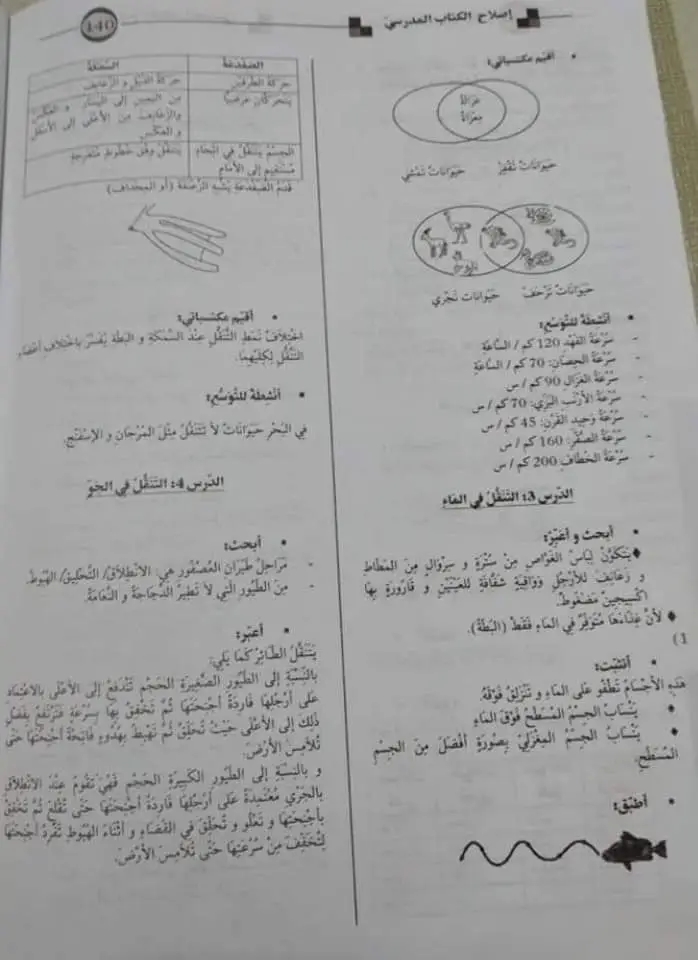 140
إصلاح الكتاب المدرسي
• أقيم مكتسباتي:
غزالة
معزاة
حيوانات تقفز حيوانات تمشي
حيوانات تزحف حيوانات تجري
• أنشطة للتوسّع:
- سُرْعَةُ الفَهْدِ 120 كم / السَّاعَةِ
- سُرْعَةُ الحِصَانِ: 70 كم / السَّاعَةِ
- سُرْعَةُ الغَزَالِ 90 كم / س
- سُرْعَةُ الأَرْنَبِ البَرِّي: 70 كم / س
- سُرْعَةُ وَحِيدِ القَرْنِ: 45 كم / س
- سُرْعَةُ الصَّقْرِ: 160 كم / س
- سُرْعَةُ الخُطَّافِ 200 كم / س
الدّرس 3: التّنَقُّل في المَاء
• أبحث و أعبّر:
♦ يَتَكَوَّنُ لِبَاسُ الغَوَّاصِ مِنْ سُتْرَةٍ و سِرْوَالٍ مِنَ المَطَّاطِ
و زَعَانِفَ لِلأَرْجُلِ وَوَاقِيَةٍ شَفَّافَةٍ لِلعَيْنَيْنِ و قَارُورَةٍ بِهَا
أكْسِيجِين مَضْغُوطٌ.
♦ لأَنَّ غِذَاءَهَا مُتَوَفِّرٌ في المَاءِ فَقَطْ (البَطَّةُ).
(1
• أتثبّت:
هَذِهِ الأَجْسَامُ تَطْفُو عَلَى المَاءِ و تَنْزَلِقُ فَوْقَهُ.
♦ يَنْسَابُ الجِسْمُ المُسَطَّحُ فَوْقَ المَاءِ
♦ يَنْسَابُ الجِسْمُ المِغْزَلِيُّ بِصُورَةٍ أَفْضَلَ مِنَ الجِسْمِ
المُسَطَّحِ.
• أطبّق:
الضفدعة السمكة
حركة الطرفين حركة الذيل و الزعانف
يتحركان عرضيا من اليمين إلى اليسار و العكس
والزعانف من الأعلى إلى الأسفل
و العكس
الجسم يتنقل في اتجاه يتنقل وفق خطوط متعرجة
مستقيم إلى الأمام
قَدَمُ الضّفْدَعَةِ يُشْبِهُ الزّعْنَفَةَ (أو المِجْدَاف)
• أقيّم مكتسباتي:
اخْتِلاَفُ نَمَطِ التَّنَقُّلِ عِنْدَ السَّمَكَةِ و البَطَّةِ يُفَسَّرُ بِاخْتِلاَفِ أعْضَاءِ
التَّنَقُّلِ لِكِلَيْهِمَا.
• أنشطة للتوسّع:
فِي البَحْرِ حَيَوَانَاتٌ لاَ تَتَنَقَّلُ مِثْلَ المَرْجَانِ و الإسْفَنْجِ.
الدّرس 4: التّنَقُّل في الجَوّ
• أبحث:
- مَرَاحِلُ طَيَرَانِ العُصْفُورِ هِيَ: الانْطِلاَقُ/ التَّحْلِيقُ/ الهُبُوطُ.
- مِنَ الطُّيُورِ الَّتِي لاَ تَطِيرُ الدَّجَاجَةُ و النَّعَامَةُ.
• أعبّر:
يَتَنَقَّلُ الطَّائِرُ كَمَا يَلِي:
بِالنِّسْبَةِ إلى الطُّيُورِ الصَّغِيرَةِ الحَجْمِ تَنْدَفِعُ إلى الأعْلَى بِالاعْتِمَادِ
عَلَى أرْجُلِهَا فَارِدَةً أجْنِحَتَهَا ثُمَّ تَخْفِقُ بِهَا بِسُرْعَةٍ فَتَرْتَفِعُ بِفَضْلِ
ذَلِكَ إلى الأعْلَى حَيْثُ تُحَلِّقُ ثُمَّ تَهْبِطُ بِهُدُوءٍ فَاتِحَةً أجْنِحَتَهَا حَتَّى
تُلاَمِسَ الأرْضَ.
و بِالنِّسْبَةِ إلى الطُّيُورِ الكَبِيرَةِ الحَجْمِ فَهِيَ تَقُومُ عِنْدَ الانْطِلاَقِ
بِالجَرْيِ مُعْتَمِدَةً عَلَى أرْجُلِهَا فَارِدَةً أجْنِحَتَهَا حَتَّى تُقْلِعَ ثُمَّ تَخْفِقُ
بِأجْنِحَتِهَا و تَعْلُو و تُحَلِّقُ في الفَضَاءِ و أثْنَاءَ الهُبُوطِ تَفْرِدُ أجْنِحَتَهَا
لِتُخَفِّفَ مِنْ سُرْعَتِهَا حَتَّى تُلاَمِسَ الأرْضَ.